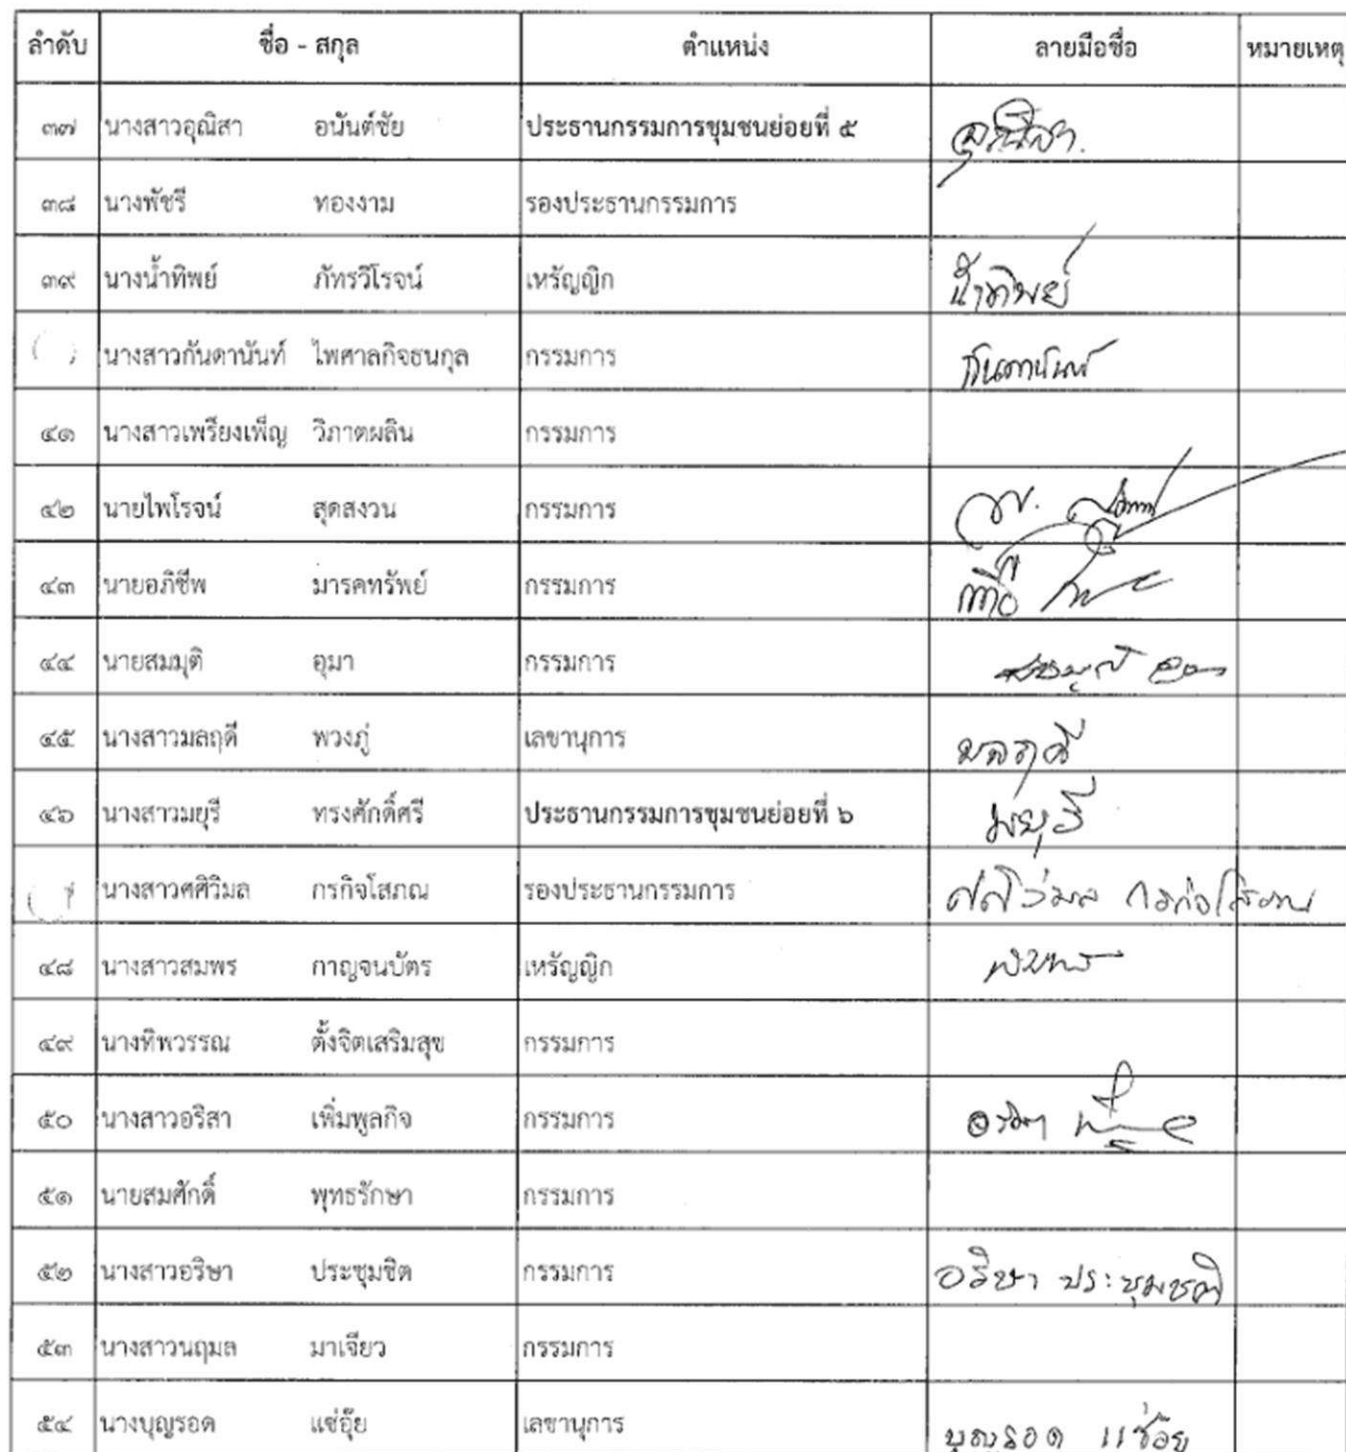 ลำดับ ชื่อ - สกุล ตำแหน่ง ลายมือชื่อ หมายเหตุ
๓๗ นางสาวอุณิสา อนันต์ชัย ประธานกรรมการชุมชนย่อยที่ ๕
๓๘ นางพัชรี ทองงาม รองประธานกรรมการ
๓๙ นางน้ำทิพย์ ภัทรวิโรจน์ เหรัญญิก น้ำทิพย์
นางสาวกันดานันท์ ไพศาลกิจธนกุล กรรมการ กันดานันท์
๔๑ นางสาวเพรียงเพ็ญ วิภาตผลิน กรรมการ
๔๒ นายไพโรจน์ สุดสงวน กรรมการ
๔๓ นายอภิชีพ มารคทรัพย์ กรรมการ
๔๔ นายสมมุติ อุมา กรรมการ
๔๕ นางสาวมลฤดี พวงภู่ เลขานุการ มลฤดี
๔๖ นางสาวมยุรี ทรงศักดิ์ศรี ประธานกรรมการชุมชนย่อยที่ ๖ มยุรี
นางสาวศศิวิมล กรกิจโสภณ รองประธานกรรมการ ศศิวิมล กรกิจโสภณ
๔๘ นางสาวสมพร กาญจนบัตร เหรัญญิก
๔๙ นางทิพวรรณ ตั้งจิตเสริมสุข กรรมการ
๕๐ นางสาวอริสา เพิ่มพูลกิจ กรรมการ อริสา
๕๑ นายสมศักดิ์ พุทธรักษา กรรมการ
๕๒ นางสาวอริษา ประชุมชิต กรรมการ อริษา ประชุมชิต
๕๓ นางสาวนฤมล มาเจียว กรรมการ
๕๔ นางบุญรอด แซ่อุ๊ย เลขานุการ บุญรอด แซ่อุ๊ย